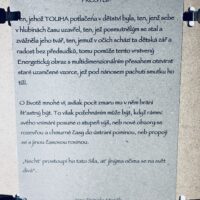 Ten, jehož TOUHA potlačena v dětství byla, ten, jenž sebe
v hlubinách času uzavřel, ten, jež posmutnělým se stal a
zvážněla jeho tvář, ten, jemuž v očích schází ta dětská zář a
radost bez předsudků, tomu pomůže tento vrstvený
Energetický obraz s multidimenzionálním přesahem otevírat
staré uzamčené vzorce, jež pod nánosem pachuti smutku ho
tíží.
O životě mnohé ví, avšak pocit zmaru mu v něm brání
šťastný být. To však požehnáním může být, když rámec
svého vnímání posune o stupeň výš, neb nové obzory se
rozevřou a chmurné časy jdou do ústraní pominou, neb propojí
se s jinou časovou rovinou.
„Nechť prostoupí ho tato Síla, ať jinýma očima se na svět
dívá“.